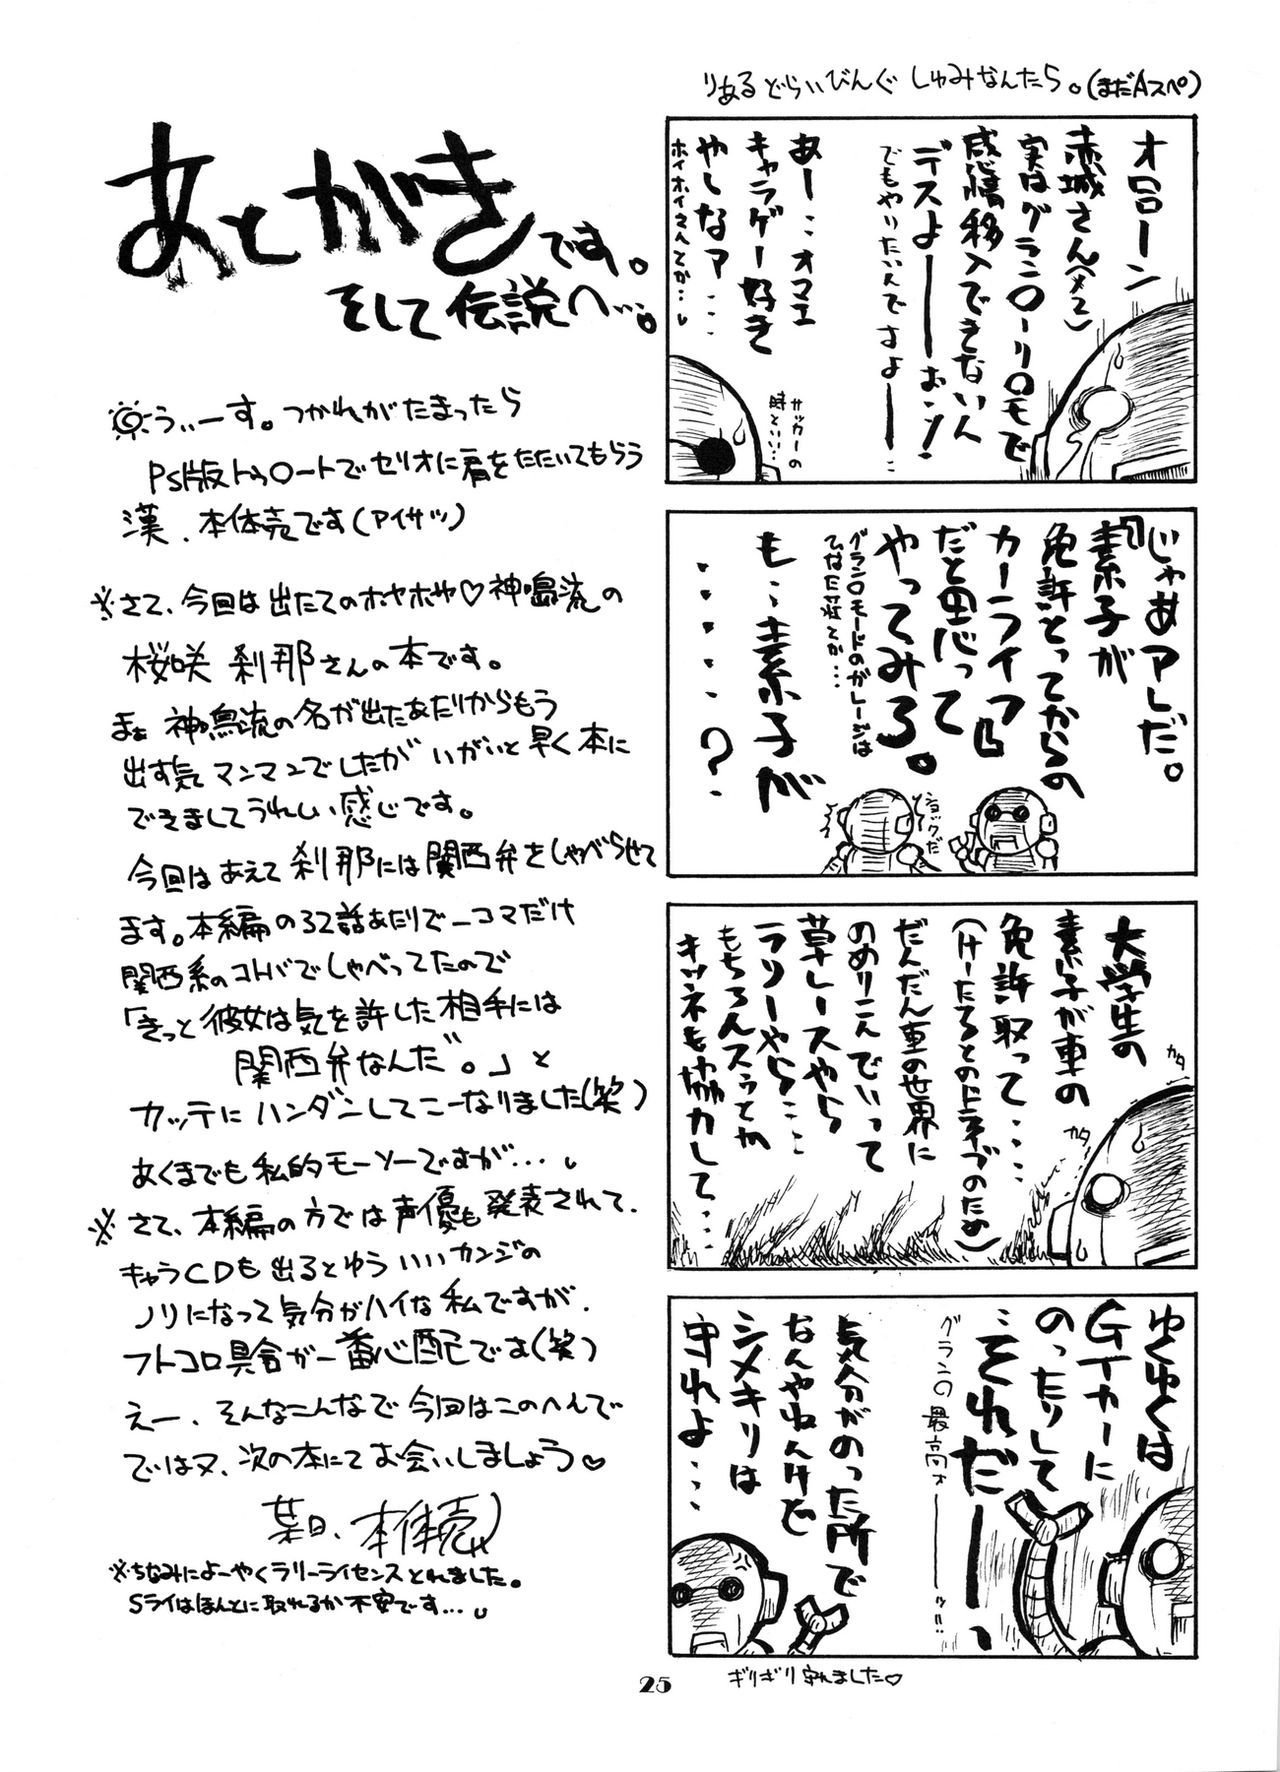 あとがきです。
そして伝説へ…。
うぃーす。つかれがたまったら
PS版トゥハートでセリオに肩をたたいてもらう
漢、本体売です(アイサツ)
※さて、今回は出たてのホヤホヤ♡神鳴流の
桜咲 刹那さんの本です。
まぁ神鳴流の名が出たあたりからもう
出す気マンマンでしたがいがいと早く本に
できましてうれしい感じです。
今回はあえて刹那には関西弁をしゃべらせて
ます。本編の32話あたりで一コマだけ
関西系のコトバでしゃべってたので
「きっと彼女は気を許した相手には
関西弁なんだ。」と
カッテにハンダンしてこーなりました(笑)
あくまでも私的モーソーですが…。
※さて、本編の方では声優も発表されて、
キャラCDも出るとゆういいカンジの
ノリになって気分がハイな私ですが、
フトコロ具合が一番心配です(笑)
えー、そんなこんなで今回はこのへんで
ではヌ、次の本にてお会いしましょう♡
某日、本体売
※ちなみによーやくラリーライセンスとれました。
Sライはほんとに取れるか不安です…。
りあるどらいびんぐ しゅみなんたら。(まだAスペ)
オローン
赤城さん(メコ)
実はグランツーリスモで
感情移入できないん
デスよーーおン!
でもやりたいんですよーー
あー…オマエ
キャラゲー好き
やしなァ…
ホイホイさんとか…
サッカーの
時といい…
じゃあアレだ。
『素子が
免許とってからの
カーライフ』
だと思って
やってみろ。
グランツモードのガレージは
ひなた荘とか…
も…素子が
・・・・?
ショックだ
大学生の
素子が車の
免許取って…
(けーたろとのドライブのため)
だんだん車の世界に
のめりこんでいって
草レースやら
ラリーやら…
もちろんスゥとか
キツネも協力して…
カタ
カタ
ゆくゆくは
GTカーに
のったりして
…それだーーっ
グランの最高ォーーッ!!
気分がのった所で
なんやねんけど
シメキリは
守れよ…
ギリギリ守れました♡
25